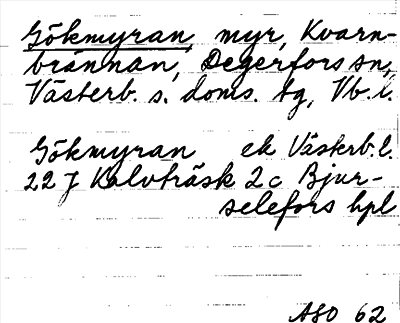 Gökmyran, myr, Kvarn-
brännan, Degerfors sn,
Västerb. s. doms. tg, Vb. l.
Gökmyran ek Västerb. l.
22 J Kalvträsk 2 c Bjur-
selefors hpl
ASO 62